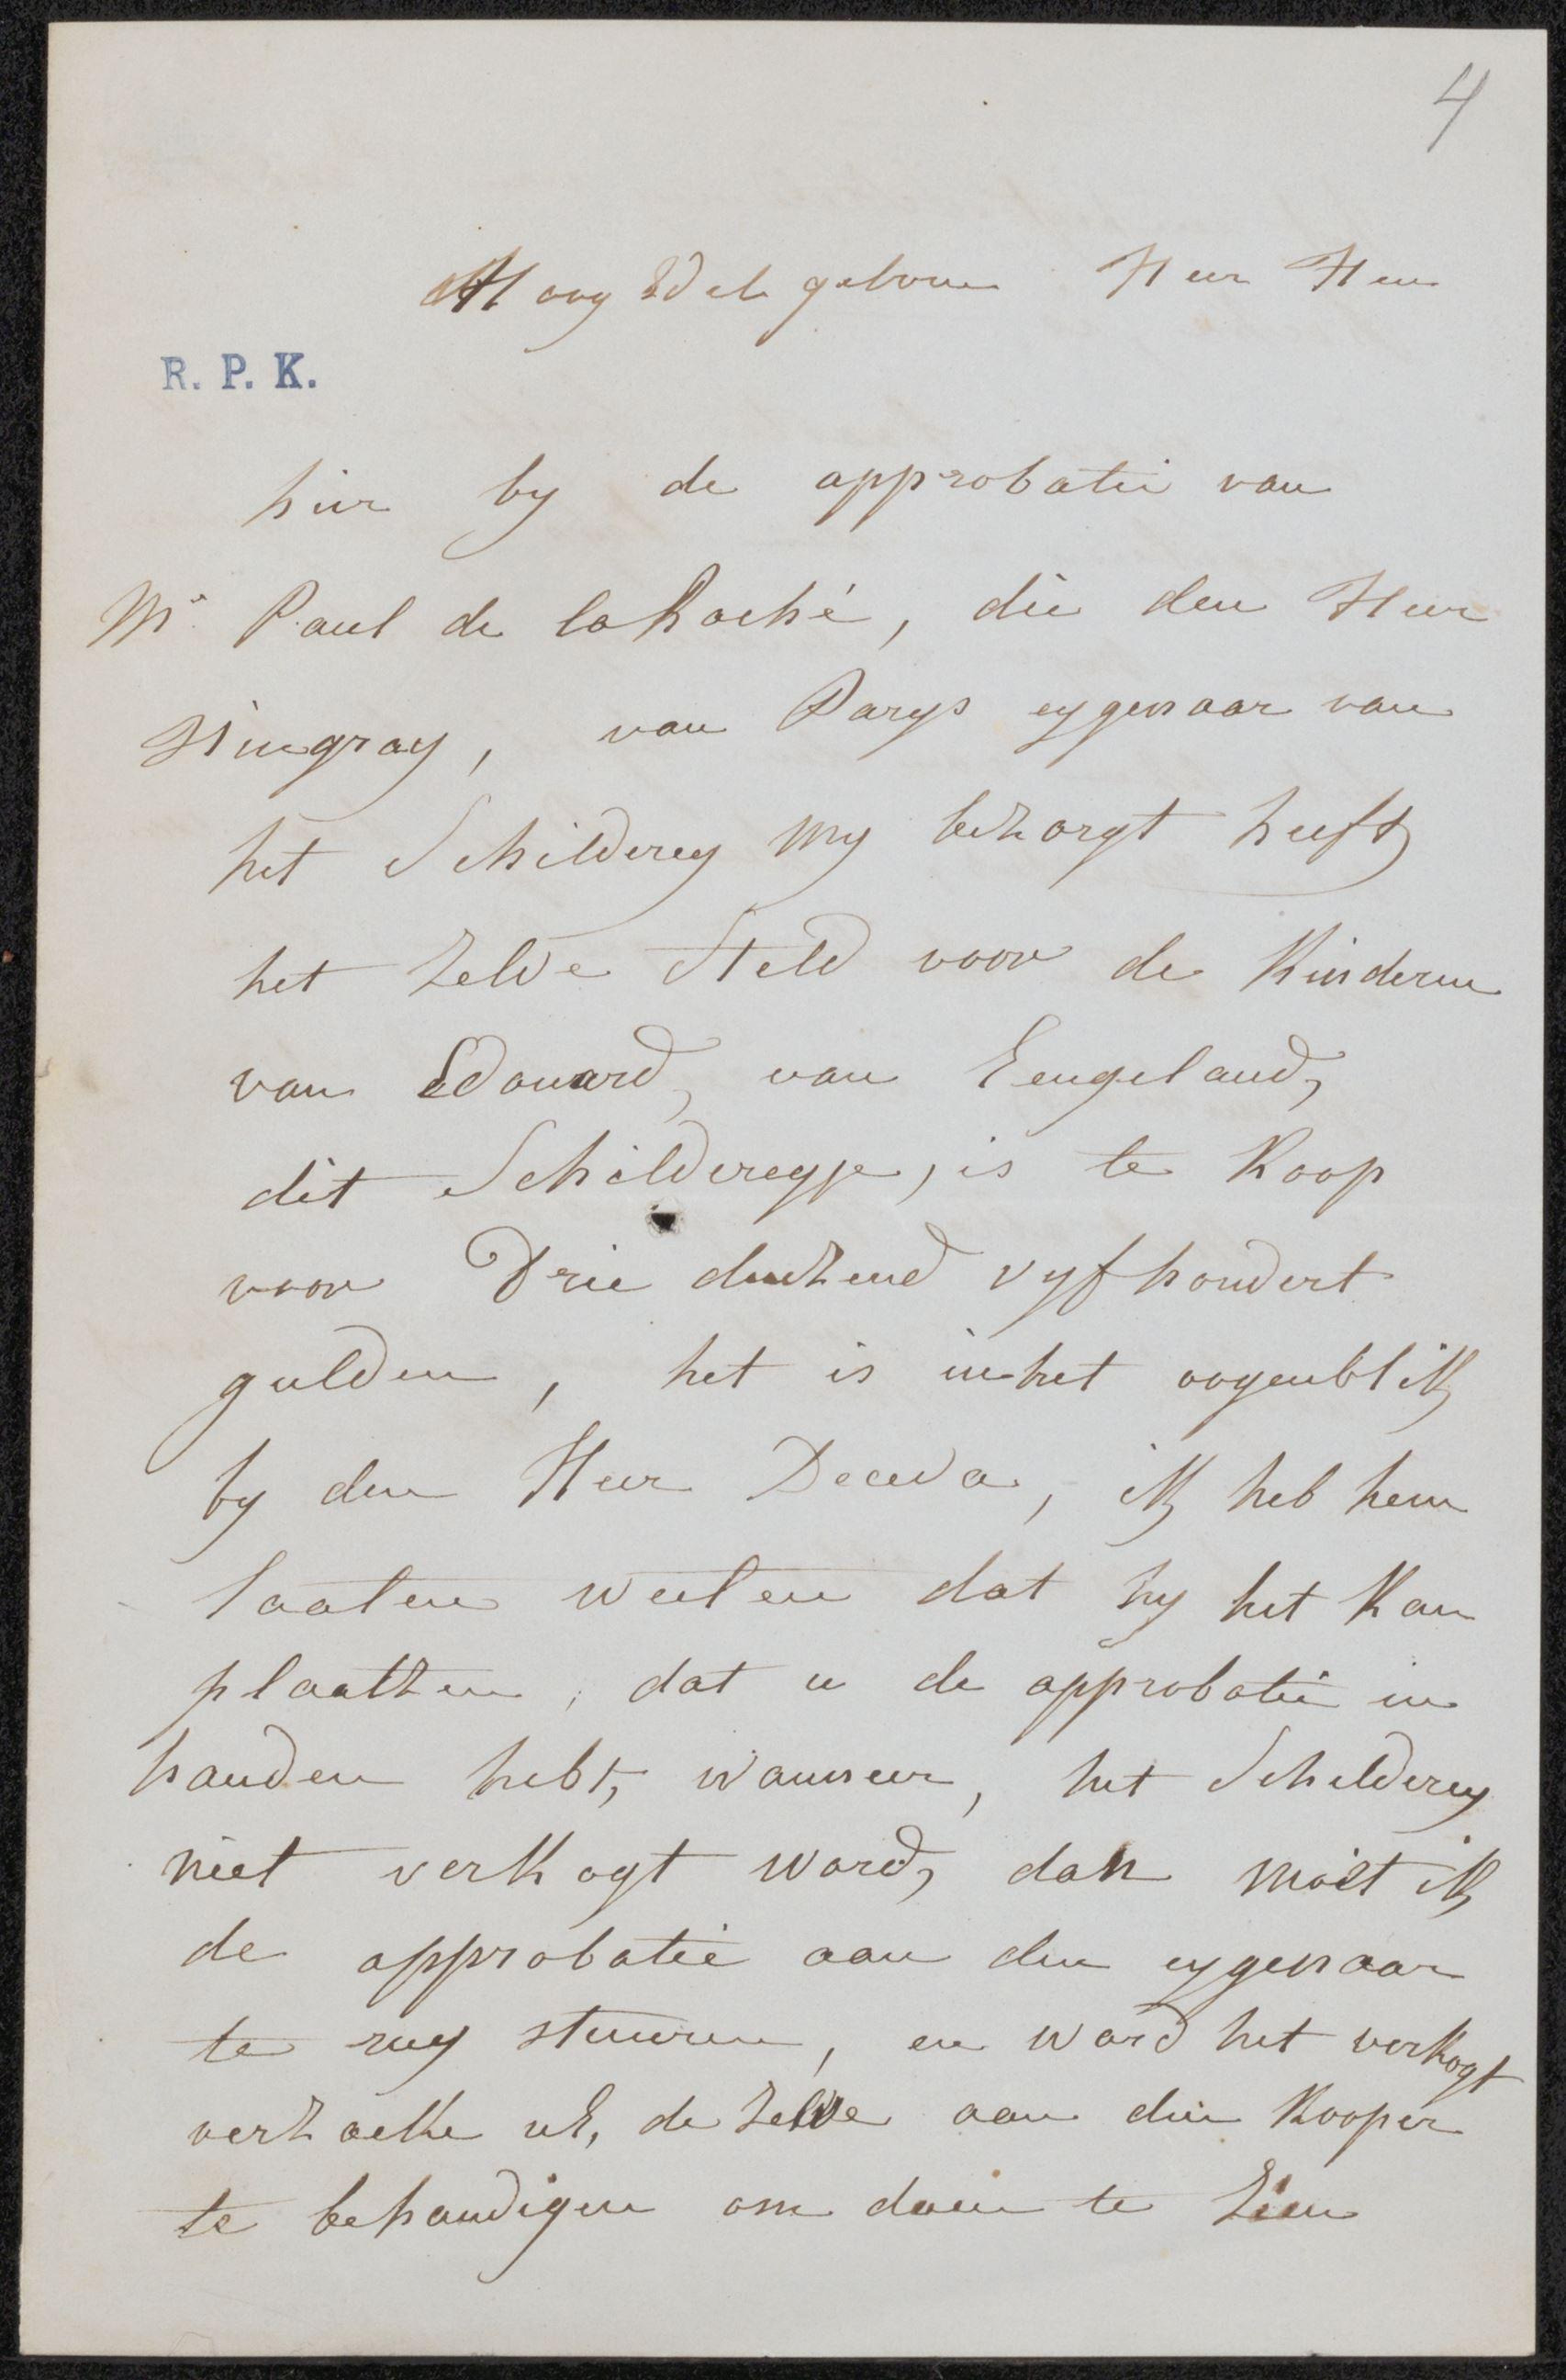 4
Hoog Edel geboren Heer Heer
R. P. K.
hier by de approbatie van
Mr. Paul de laRoché, die den Heer
Hingray, van Parys eygenaar van
het Schilderey my bezorgt heeft,
het zelve Steld voor de Kinderen
van Edouard, van Eengeland,
dit Schildereyje, is te Koop
voor Drie duizend vyfhondert
gulden, het is inhet oogenblik
by den Heer Deceva, ik heb hem
laaten weeten dat hy het Kan
plaatzen, dat u de approbatie in
handen hebt, wanneer, het Schilderey
niet verkogt word, dan moet ik
de approbatie aan den eygenaar
te rug stuuren, en word het verkogt
verzoeke uE, de zelve aan den Kooper
te behandigen om doen te zien